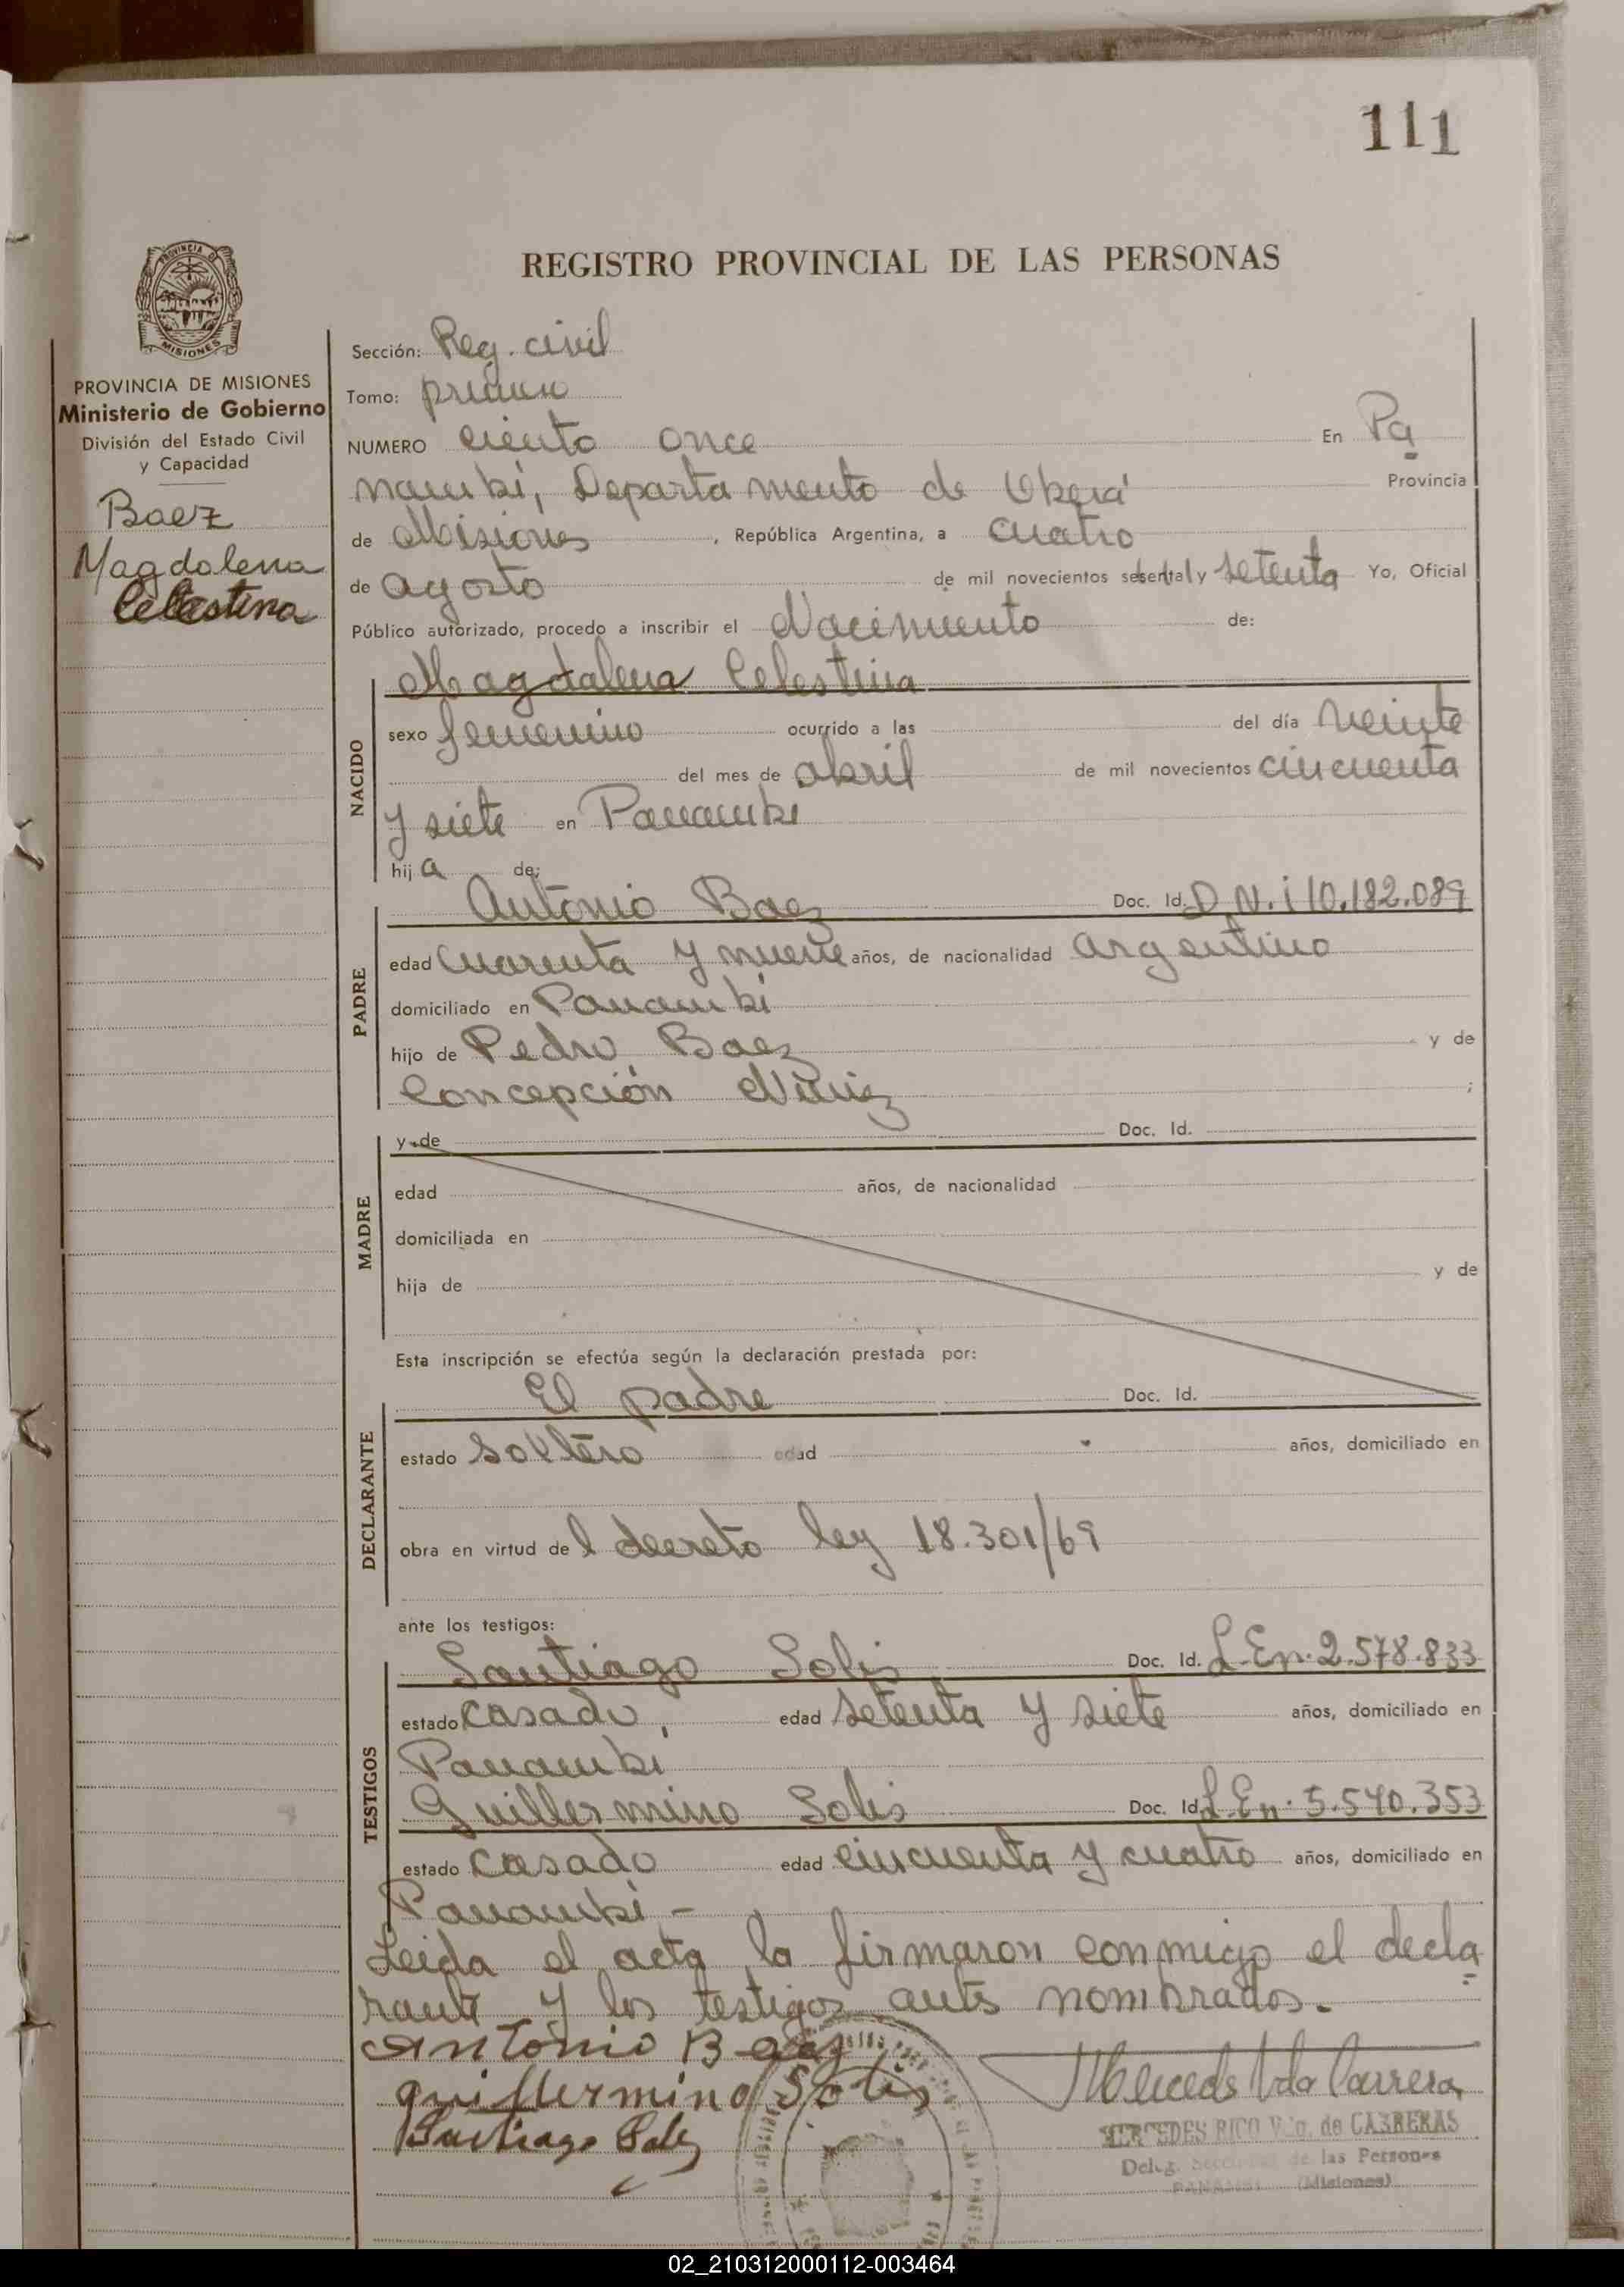 111
REGISTRO PROVINCIAL DE LAS PERSONAS
PROVINCIA DE MISIONES
Ministerio de Gobierno
División del Estado Civil
y Capacidad
Baez
Magdalena
Celestina
Sección: Reg. civil
Tomo: primero
NUMERO ciento once En Pa
nambí, Departamento de Oberá Provincia
de Misiones, República Argentina, a cuatro
de agosto de mil novecientos sesenta y setenta Yo, Oficial
Público autorizado, procedo a inscribir el Nacimiento de:
NACIDO
Magdalena Celestina
sexo femenino ocurrido a las del día veinte
del mes de abril de mil novecientos cincuenta
y siete en Panambí
hija de:
PADRE
Antonio Baez Doc. Id. D.N.i 10.182.089
edad cuarenta y nueve años, de nacionalidad argentino
domiciliado en Panambí
hijo de Pedro Baez y de
Concepción ;
MADRE
y de Doc. Id.
edad años, de nacionalidad
domiciliada en
hija de y de
Esta inscripción se efectúa según la declaración prestada por:
DECLARANTE
El padre Doc. Id.
estado soltero edad años, domiciliado en
obra en virtud del decreto ley 18.301/69
ante los testigos:
TESTIGOS
Santiago Solis Doc. Id. L.En. 2.578.833
estado casado, edad setenta y siete años, domiciliado en
Panambí
Guillermino Solis Doc. Id. L.En. 5.540.353
estado casado edad cincuenta y cuatro años, domiciliado en
Panambí -
Leida el acta, la firmaron conmigo el decla
rante y los testigos antes nombrados.-
Antonio Baez
guillermino Solis
Santiago
Mercedes Vda Carrera
MERCEDES RICO Vda. de CARRERAS
Deleg. de las Personas
PANAMBI (Misiones)
02_210312000112-003464